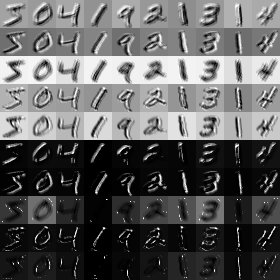 5 0 4 1 9 2 1 3 1 4
5 0 4 1 9 2 1 3 1 4
5 0 4 1 9 2 1 3 1 4
5 0 4 1 9 2 1 3 1 4
5 0 4 1 9 2 1 3 1 4
5 0 4 1 9 2 1 3 1 4
5 0 4 1 9 2 1 3 1 4
5 0 4 1 9 2 1 3 1 4
5 0 4 1 9 2 1 3 1 4
5 0 4 1 9 2 1 3 1 4